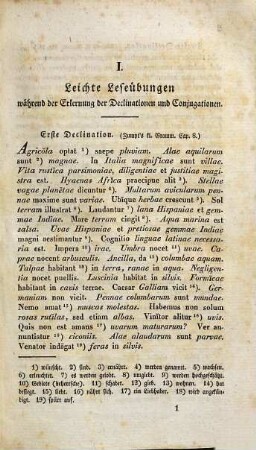 I.
Leichte Leseübungen
während der Erlernung der Declinationen und Conjugationen.
Erste Declination. (Zumpt's kl. Gramm. Cap. 8.)
Agricŏla optat ¹) saepe pluviam. Alae aquilarum
sunt ²) magnae. In Italia magnificae sunt villae.
Vita rustica parsimoniae, diligentiae et justitiae magi-
stra est. Hyaenas Africa praecipue alit ³). Stellae
vagae planētae dicuntur ⁴). Multarum avicularum pen-
nae maxime sunt variae. Ubique herbae crescunt ⁵). Sol
terram illustrat ⁶). Laudantur ⁷) lana Hispaniae et gem-
mae Indiae. Mare terram cingit ⁸). Aqua marina est
salsa. Uvae Hispaniae et pretiosae gemmae Indiae
magni aestimantur ⁹). Cognitio linguae latinae necessa-
ria est. Impera ¹⁰) irae. Umbra nocet ¹¹) uvae. Ca-
prae nocent arbusculis. Ancilla, da ¹²) columbae aquam.
Talpae habitant ¹³) in terra, ranae in aqua. Negligen-
tia nocet puellis. Luscinia habitat in silvis. Formicae
habitant in cavis terrae. Caesar Galliam vicit ¹⁴). Ger-
maniam non vicit. Pennae columbarum sunt mundae.
Nemo amat ¹⁵) muscas molestas. Habemus non solum
rosas rubras, sed etiam albas. Vinitor alitur ¹⁶) uvis.
Quis non est amans ¹⁷) uvarum maturarum? Ver an-
nuntiatur ¹⁸) ciconiis. Alae alaudarum sunt parvae.
Venator indāgat ¹⁹) feras in silvis.
1) wünscht. 2) sind. 3) ernährt. 4) werden genannt. 5) wachsen.
6) erleuchtet. 7) es werden gelobt. 8) umgiebt. 9) werden hochgeschätzt.
10) Gebiete (beherrsche). 11) schadet. 12) gieb. 13) wohnen. 14) hat
besiegt. 15) liebt. 16) nährt sich. 17) ein Liebhaber. 18) wird angekün-
digt. 19) spürt auf.
1